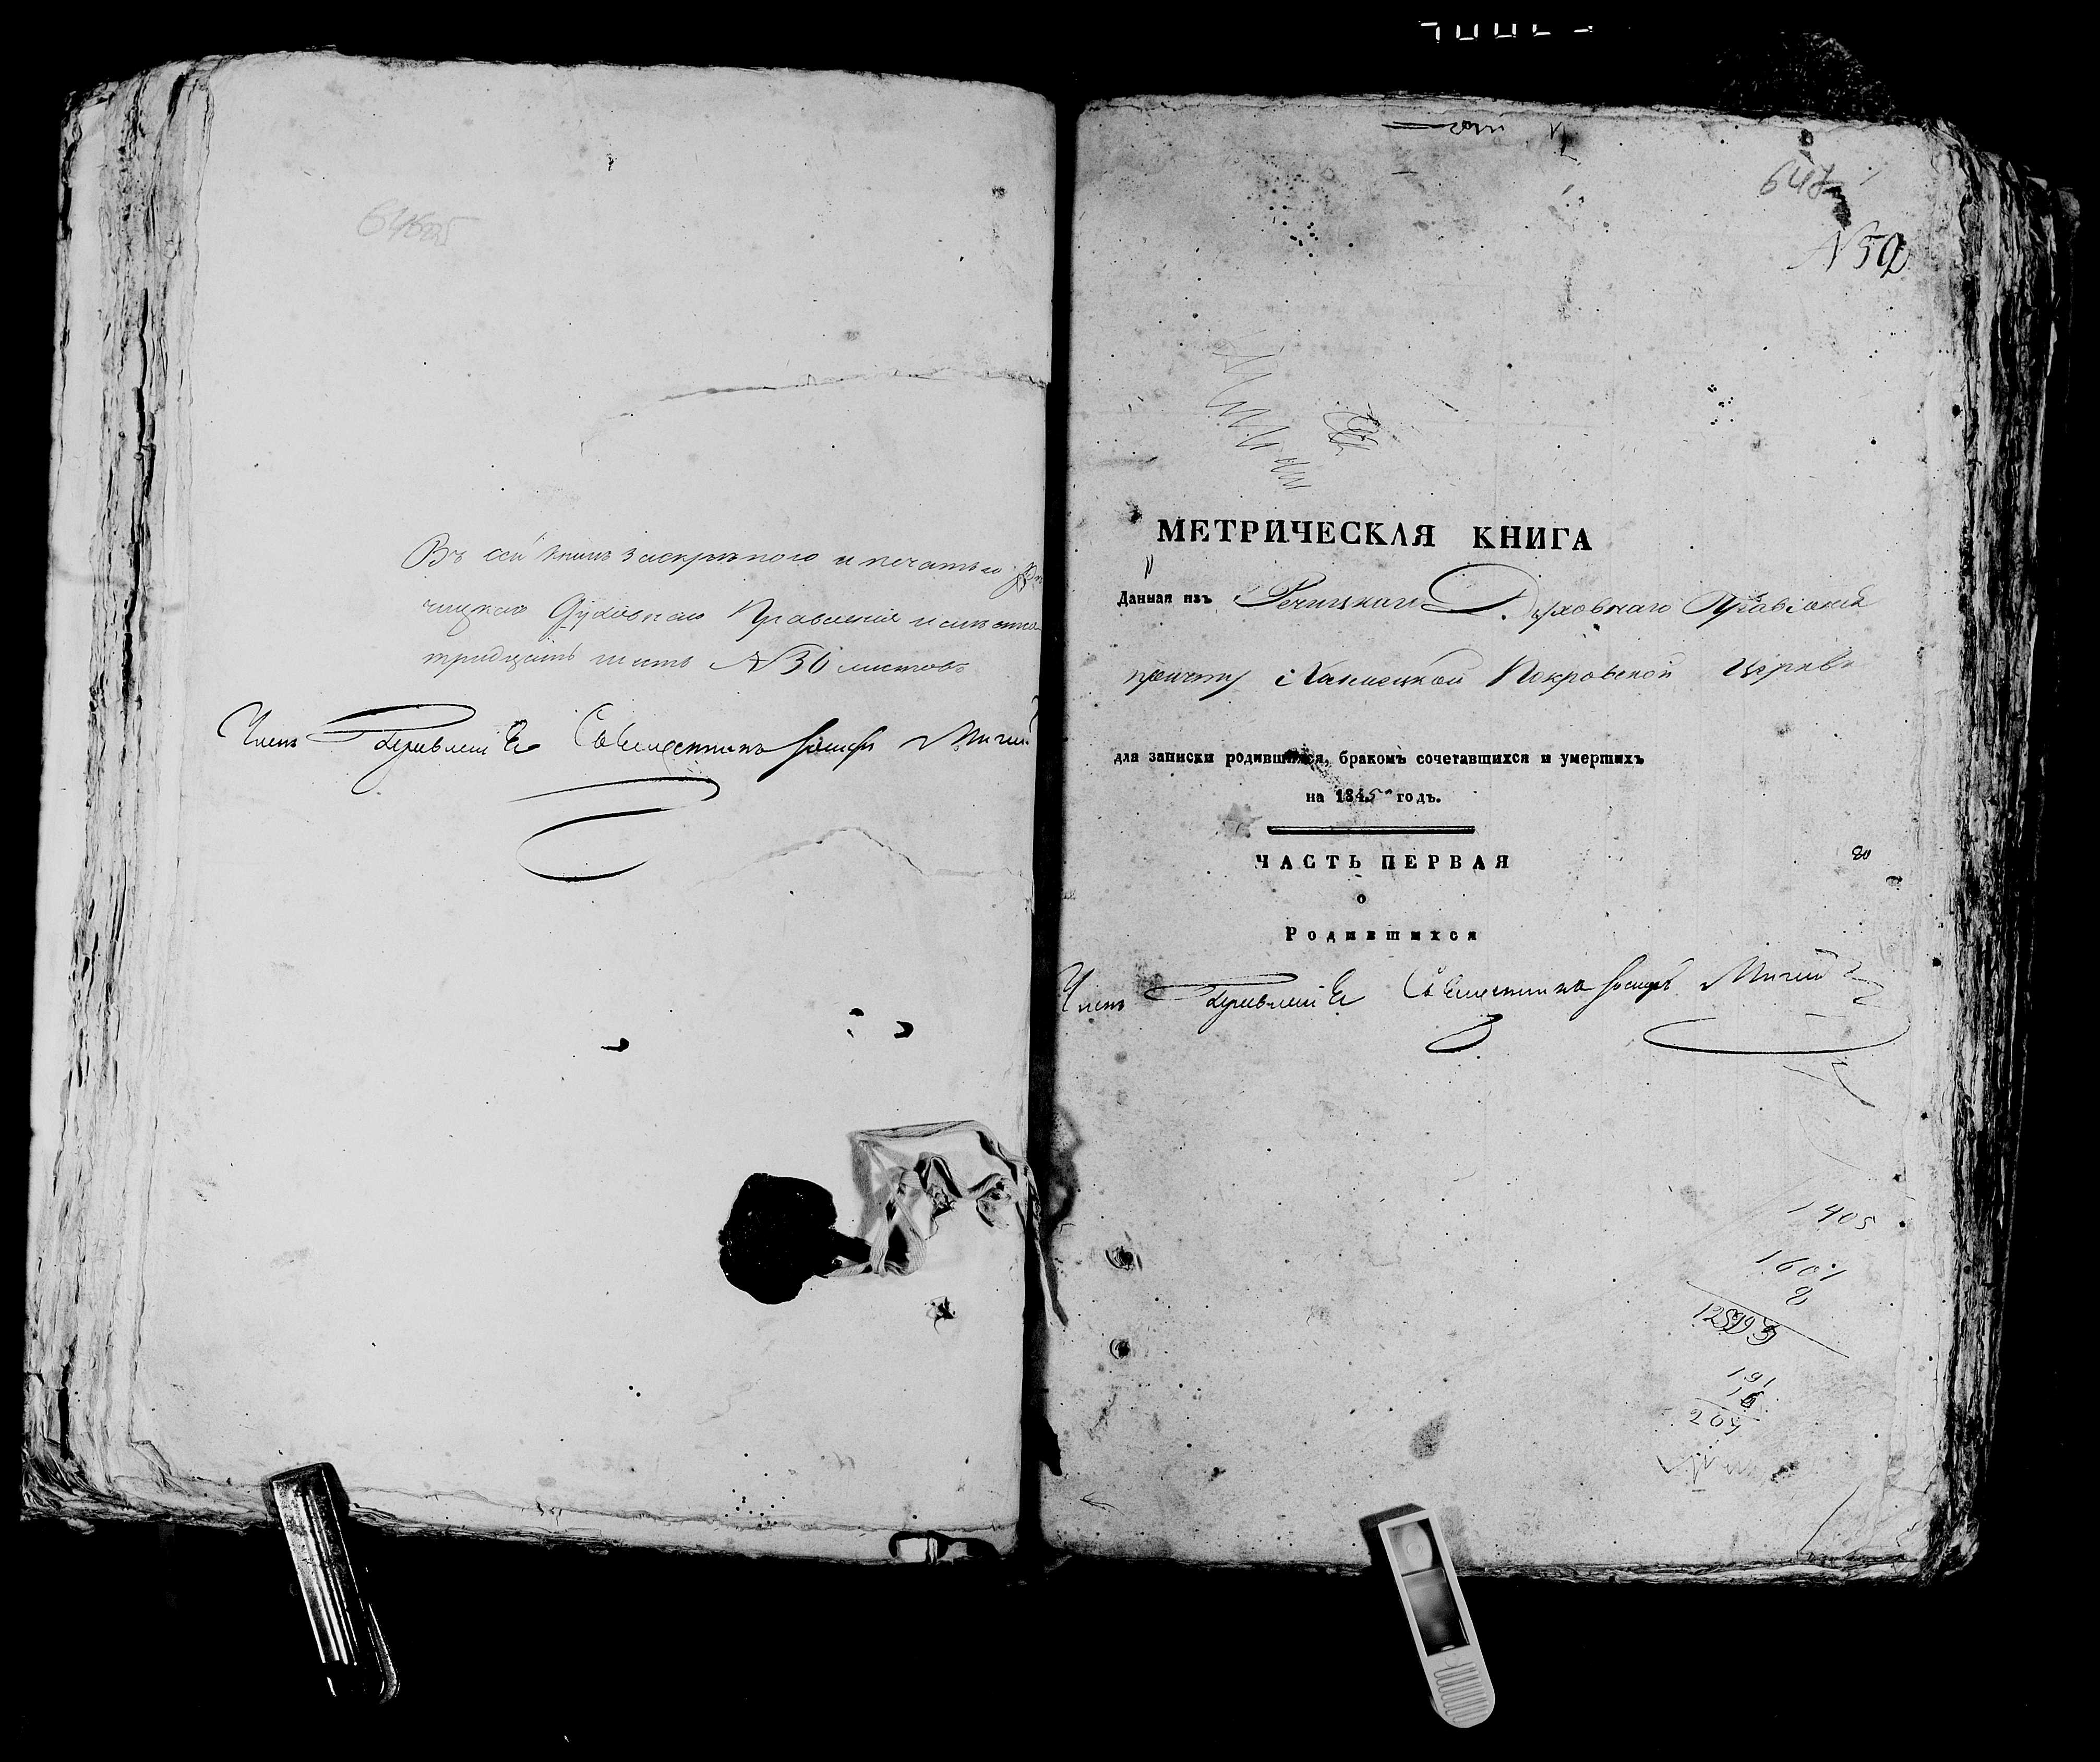 Въ сей книгѣ за скрѣпою и печатью Рѣ
чицкаго Духовнаго Правленія листовъ
тридцать шесть №36 листовъ
Членъ Правленія Священникъ Іосифъ
647
№50
МЕТРИЧЕСКАЯ КНИГА
Данная изъ Речицкаго Духовнаго Правленія
причту Покровской Церкви
для записки родившихся, бракомъ сочетавшихся и умершихъ
на 1845 годъ.
ЧАСТЬ ПЕРВАЯ
о
Родившихся
Членъ Правленія Священникъ Іосифъ
1405
1601
8
191
16
207